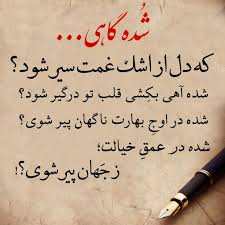 شُده گاهی...
که دل از اشك غمت سیر شود؟
شده آهی بکشی قلب تو درگیر شود؟
شده در اوجِ بهارت ناگهان پیر شوی؟
شده در عمقِ خیالت؛
زجَهان پیر شوی؟!